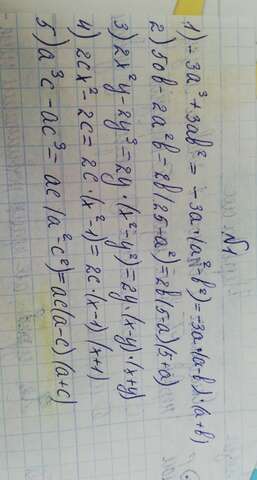 N1
1) -3a³+3ab²= -3a·(a²-b²)=-3a·(a-b)·(a+b)
2) 50b-2a²b=2b(25-a²)=2b(5-a)(5+a)
3) 2x²y-2y³=2y·(x²-y²)=2y·(x-y)·(x+y)
4) 2cx²-2c=2c·(x²-1)=2c·(x-1)(x+1)
5) a³c-ac³=ac(a²-c²)=ac(a-c)(a+c)